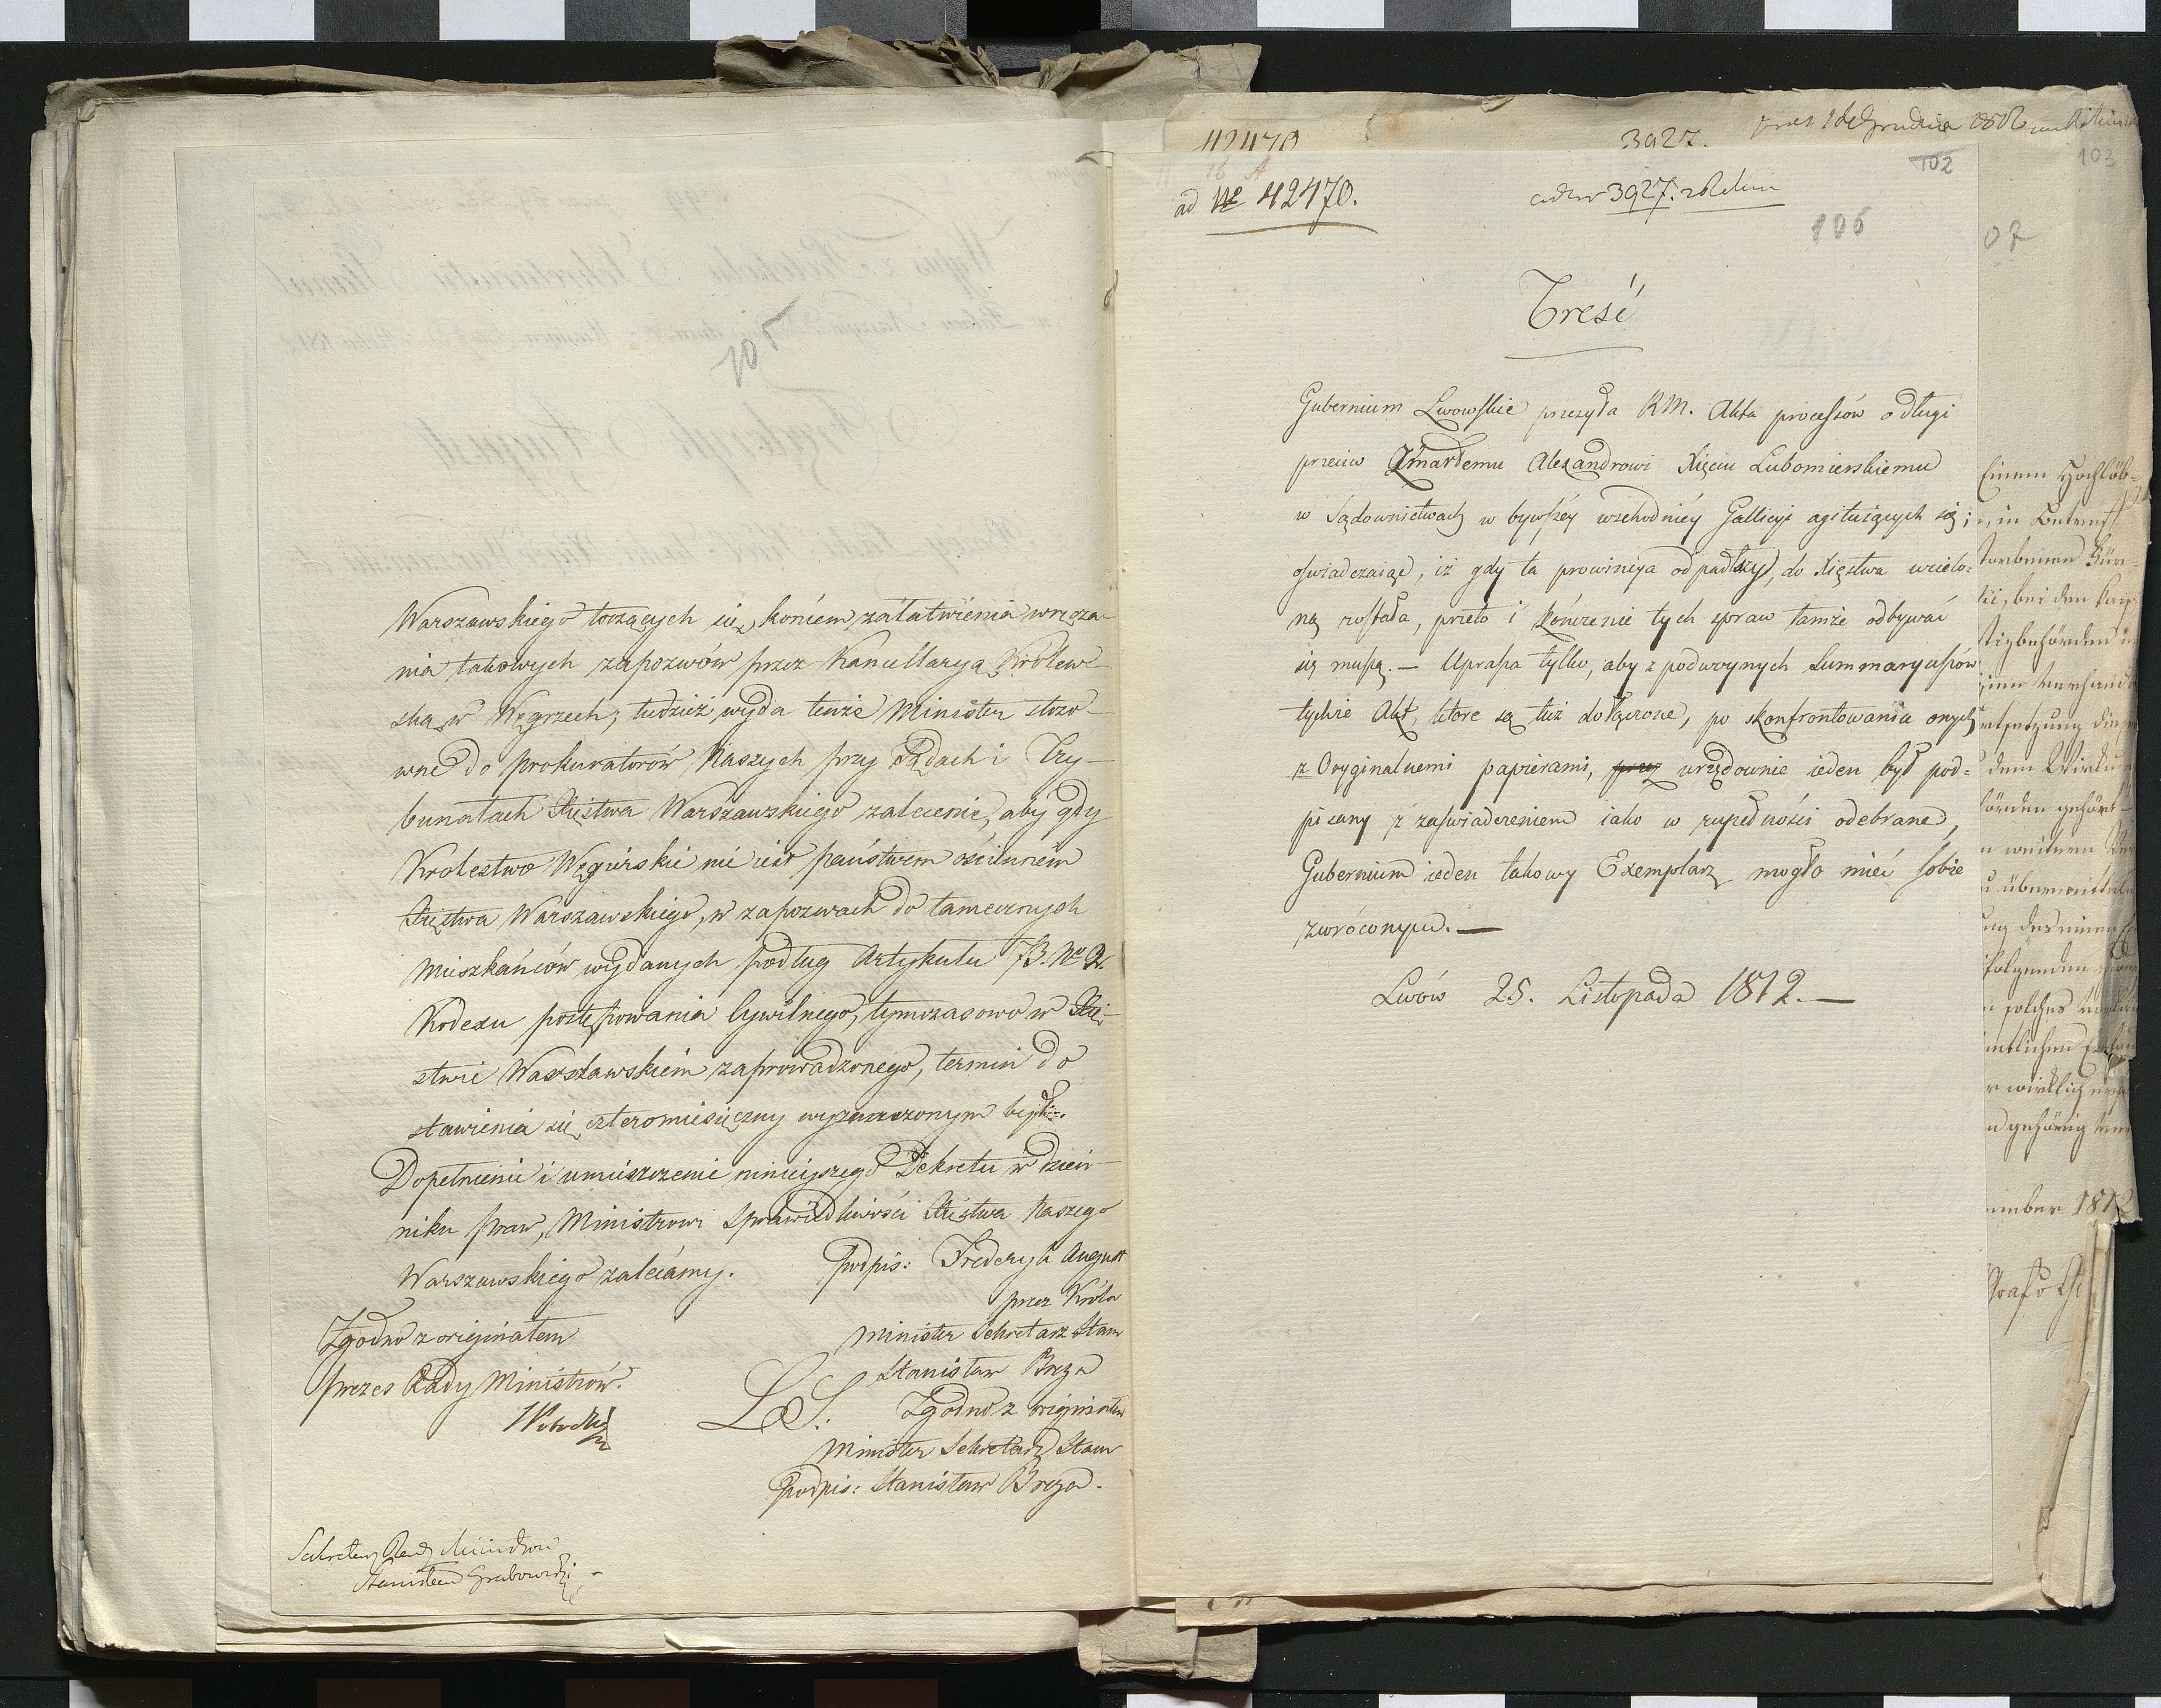 105
Warszawskiego toczących się, końcem załatwienia wręcza-
nia takowych zapozwów przez Kancellaryą Królew-
ską w Węgrzech; tudzież wyda tenże Minister stoso-
wne do prokuratorów Naszych przy Sądach i Try-
bunałach Xięstwa Warszawskiego zalecenie, aby gdy
Krolestwo Węgierskie nie iest państwem ościennem
Xięstwa Warszawskiego, w zapozwach do tamecznych
Mieszkańców wydanych podług Artykułu 73. No 2.
Kodexu postępowania Cywilnego, tymczasowo w Xię-
stwie Warszawskiem zaprowadzonego, termin do
stawienia się czteromiesięczny wyznaczonym był.
Dopełnienie i umieszczenie ninieyszego Dekretu w Dzien-
niku praw, Ministrowi Sprawiedliwości Xięstwa Naszego
Warszawskiego zalecamy.
Podpis: Frederyk August
przez Króla
Minister Sekretarz Stanu
Stanisław Breza
L. S. Zgodno z originałem
Minister Sekretarz Stanu
Podpis: Stanisław Breza.
Zgodno z originałem
Prezes Rady Ministrów.
Sekretarz Rady Ministrów
Stanisław Grabowski
42470
3927.
103
102
ad No 42470.
3927.
106
07
Treść
Gubernium Lwowskie przesyła RM. Akta processów o długi
przeciw Zmarłemu Alexandrowi Xięciu Lubomierskiemu
w Sądownictwach w bywszey wschodniéy Gallicyi agituiących się;
oswiadczaiąc, iż gdy ta prowincya odpadłszy, do Xięstwa wcielo-
ną została, przeto i kończenie tych spraw tamże odbywać
się muszą. — Uprasza tylko, aby z podwoynych Summaryuszów
tychże Akt, ktore są tuż dołączone, po skonfrontowaniu onych
z Oryginalnemi papierami, urzędownie ieden był pod-
pisany z zaświadczeniem iako w zupełności odebrane,
Gubernium ieden takowy Exemplarz mogło mieć sobie
zwróconym. —
Lwów 25. Listopada 1812. —
Einem Hochlöb-
ember 1812